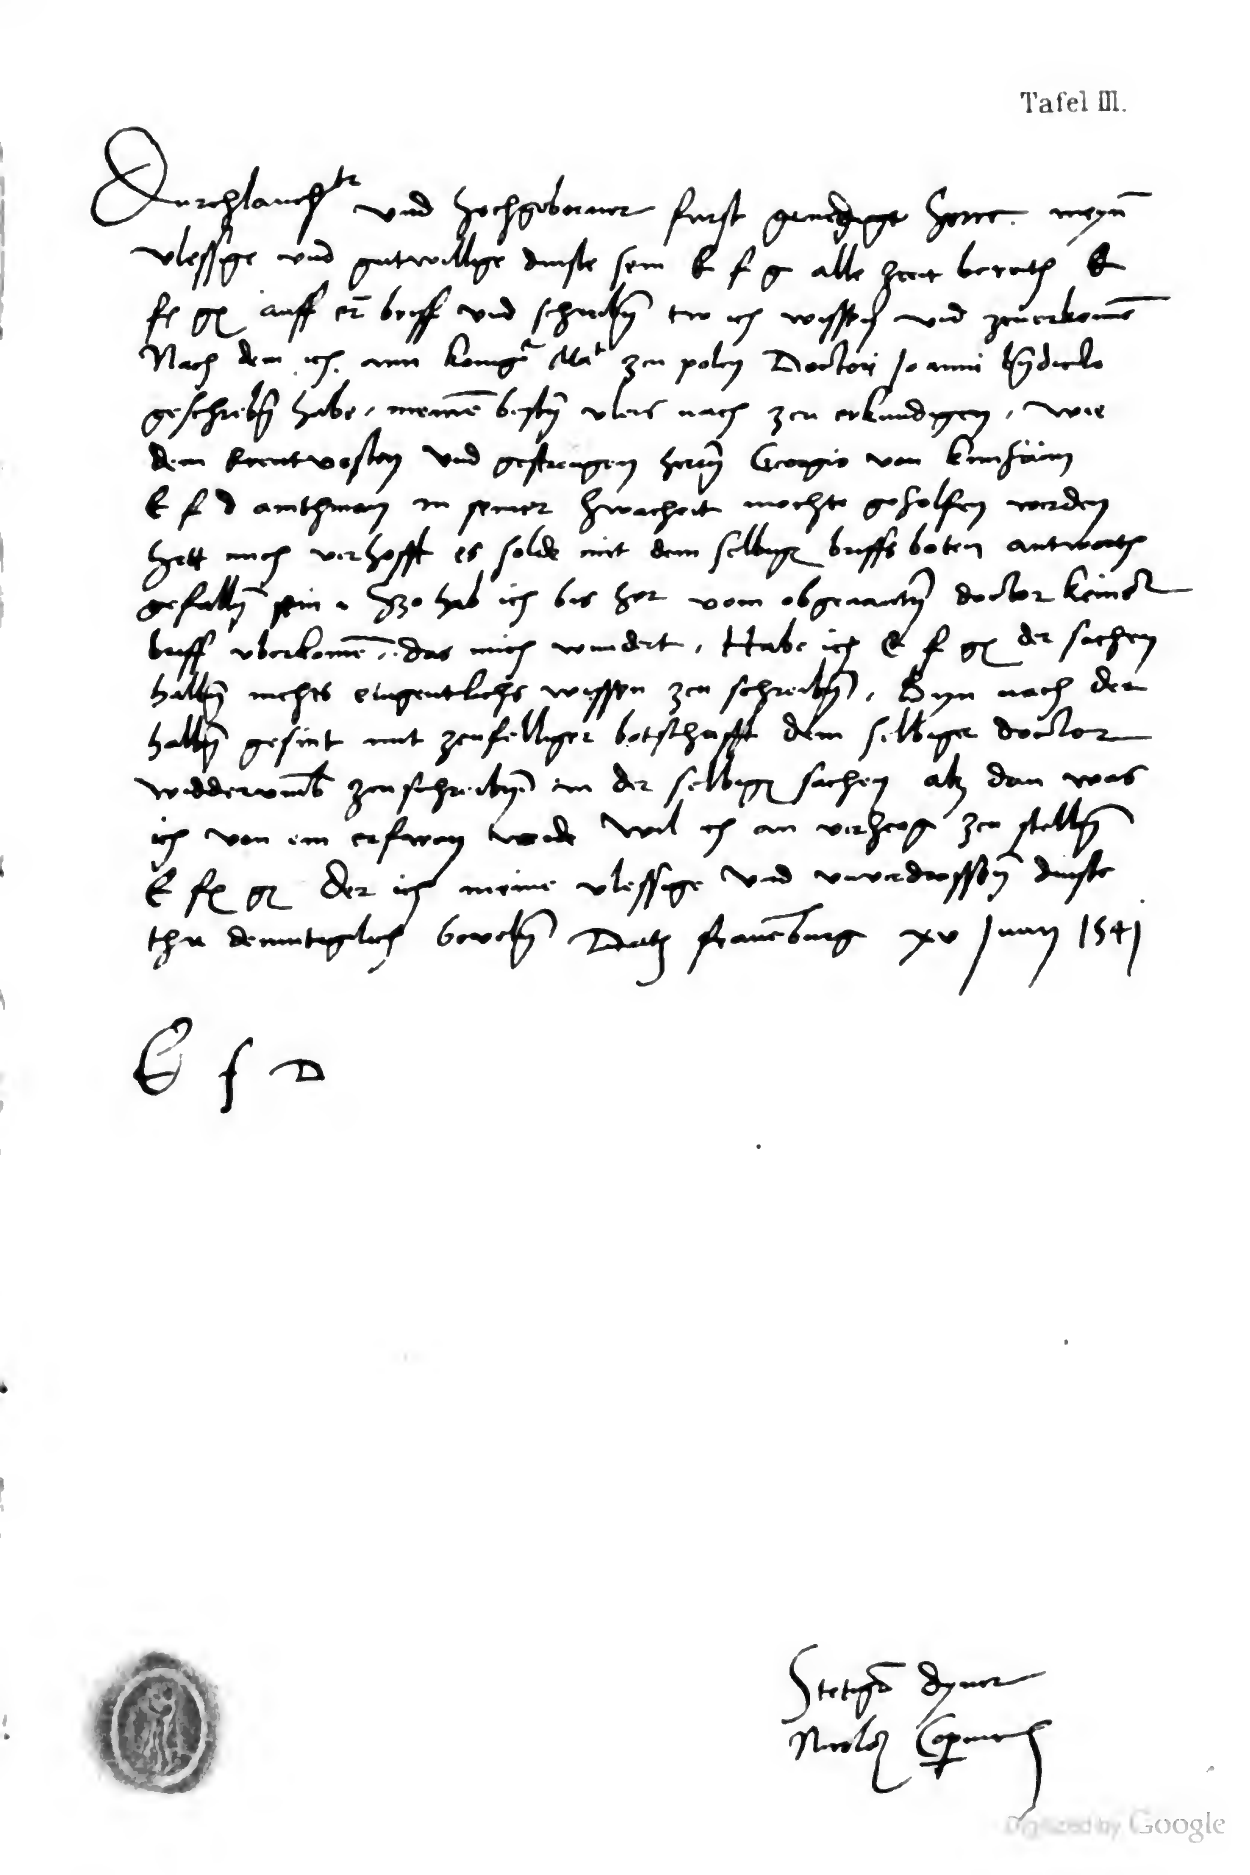 Tafel III.
Durchlauchtr vnd hochgeborner furst gnedigster herre. meyn̄
vlessige vnd gutwillige dinste sein E f g alle zceit bereith E
f g auff er̄ briff vnd schreibn̄ thu ich wissen vnd zcuerkomē
Nach dem ich ann konigr Mat zcu polen Doctori Joanni
geschribn̄ habe, meinē bestn̄ vleis nach zcu erkundigen, wie
dem erentvosten vnd gestrengen herrn̄ Georgio von kunheim
E f d amthman in seiner swacheit mochte geholfen werden
hett mich verhofft es solde mit dem selbigen briffs boten antworth
gefalln̄ sein. Szo hab ich bis her vom obgenantn̄ doctor keinē
briff vberkomē, das mich wundert, Habe ich E f g der sachen
halbn̄ nichts eigentlichs wissen zcu schreibn̄, Byn nach der
halbn̄ gesint mit zcufelliger botschafft dem selbiger doctor
widdervmb zcuschreibn̄ in der selbigen sachen alz dan was
ich von em erfaren werde wil ich an verzcog zcu stelln̄
E f g Der ich meine vlessige vnd vnuerdrossn̄ dinste
thu demutiglich beveln̄ Datz fraūenburg xv Junij 1541
E f D
Stetigr dyner
Nicolaus Copernicus
Digitized by Google